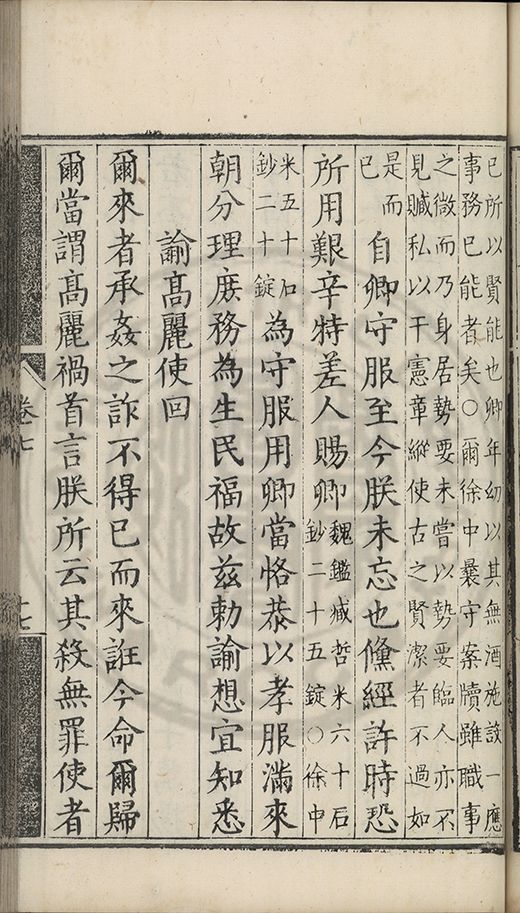 已所以賢能也卿年幼以其無酒施設一應
事務已能者矣○爾徐中曩守案牘雖職事
之微而乃身居勢要未嘗以勢要臨人亦不
見贓私以干憲章縱使古之賢潔者不過如
是而
已
自卿守服至今朕未忘也儻經許時恐
所用艱辛特差人賜卿
魏鑑臧哲米六十石
鈔二十五錠○徐中
米五十石
鈔二十錠
為守服用卿當恪恭以孝服滿來
朝分理庶務為生民福故茲勅諭想宜知悉
諭高麗使回
爾來者承姦之詐不得已而來誑今命爾歸
爾當謂高麗禍首言朕所云其殺無罪使者
卷七
十七